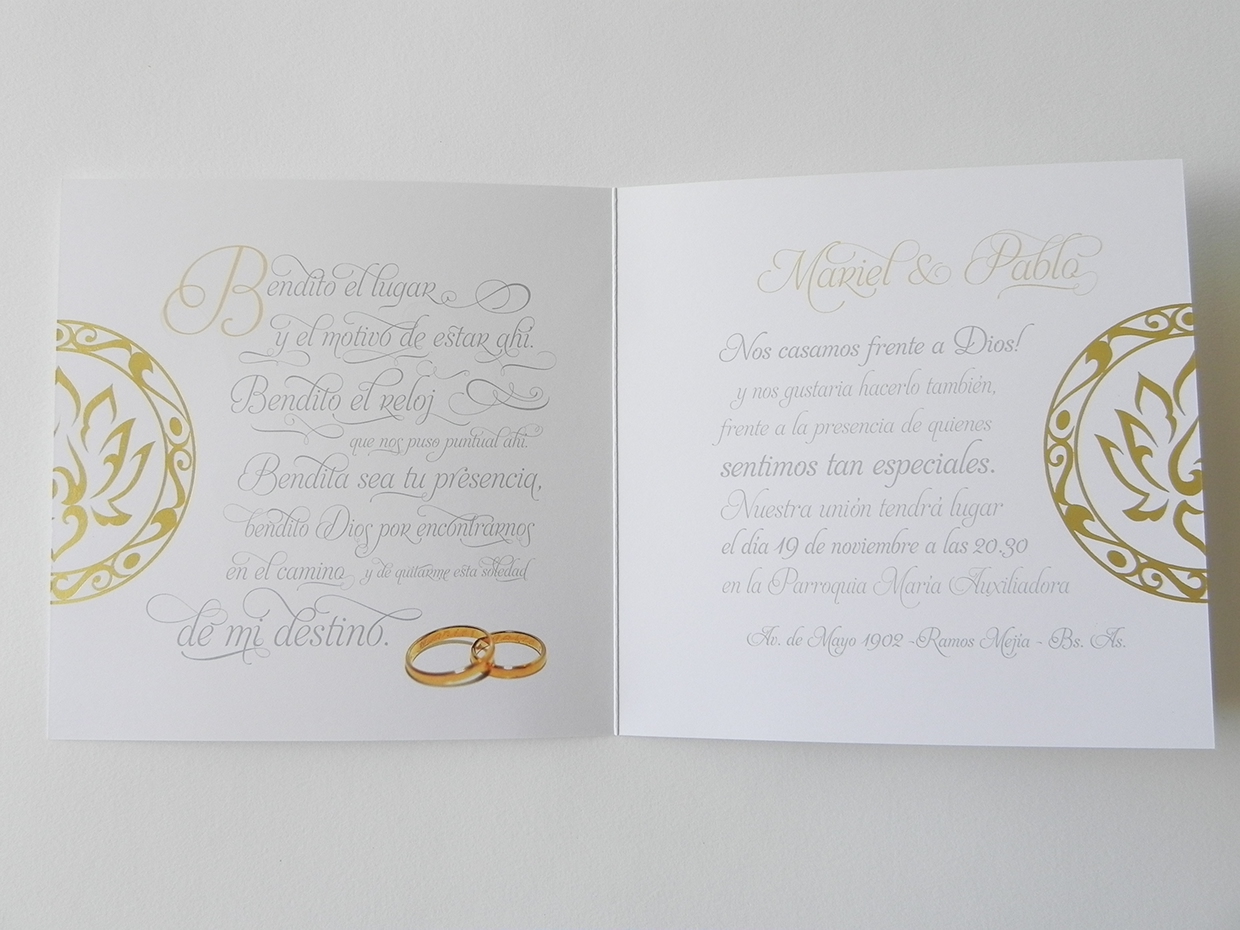 Bendito el lugar
y el motivo de estar ahí.
Bendito el reloj
que nos puso puntual ahí.
Bendita sea tu presencia,
bendito Dios por encontrarnos
en el camino y de quitarme esta soledad
de mi destino.
Mariel & Pablo
Nos casamos frente a Dios!
y nos gustaria hacerlo también,
frente a la presencia de quienes
sentimos tan especiales.
Nuestra unión tendrá lugar
el día 19 de noviembre a las 20.30
en la Parroquia Maria Auxiliadora
Av. de Mayo 1902 - Ramos Mejía - Bs. As.